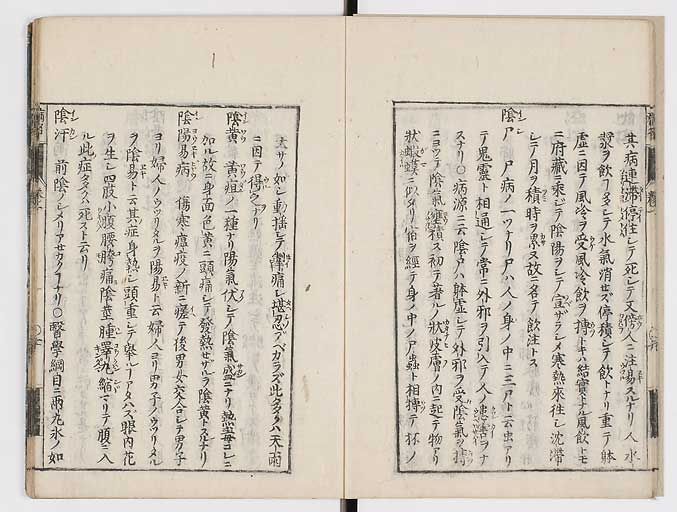 其ノ病連滞停住シテ死シテ又傍人ニ注易スルナリ人水
漿ヲ飲フ多シテ水氣消セズ停積シテ飲トナリ重テ躰
虚ニ因テ風冷ヲ受風冷飲ヲ搏トキハ結實トナル風飲トモ
ニ府藏ニ乗ジテ陰陽ヲシテ宣ザラシメ寒熱來往シ沈滞
シテ月ヲ積時ヲ累ヌ故ニ名テ飲注トス
陰尸 尸病ノ一ツナリ尸ハ人ノ身ノ中ニ三尸ト云虫アリ
テ鬼靈ト相通シテ常ニ外邪ヲ引入テ人ノ患害ヲナ
スナリ○病源ニ云陰尸ハ躰虚シテ外邪ヲ受陰氣ヲ搏
ニヨツテ陰氣壅積ス初テ著ノ状皮膚ノ内ニ起テ物アリ
状蝦蟇ニ似タリ宿ヲ經テ身ノ中ノ尸蟲ト相搏テ杯ノ
大サノ如シ動揺シテ掣痛シ堪忍ブベカラズ此多クハ天雨
ニ因テ得ルナリ
陰黄 黄疸ノ一種ナリ陽氣伏シテ陰氣盛ニナリ熱毒コレニ
加ル故ニ身面色黄ニ頭痛シテ發熱セザルヲ陰黄トスルナリ
陰陽易病 傷寒瘟疫ノ新ニ瘥テ後男女交合シテ男子
ヨリ婦人ノウツリタルヲ陽易ト云婦人ヨリ男子ノウツリタル
ヲ陰易ト云其症身熱シ頭重シテ舉ルアタハズ眼内花
ヲ生シ四肢小腹腰膀痛陰莖腫睾丸縮マリテ腹ニ入
ル此症多クハ死スト云リ
陰汗 前陰ノシメリアセカクナリ○醫學綱目ニ兩丸氷ノ如